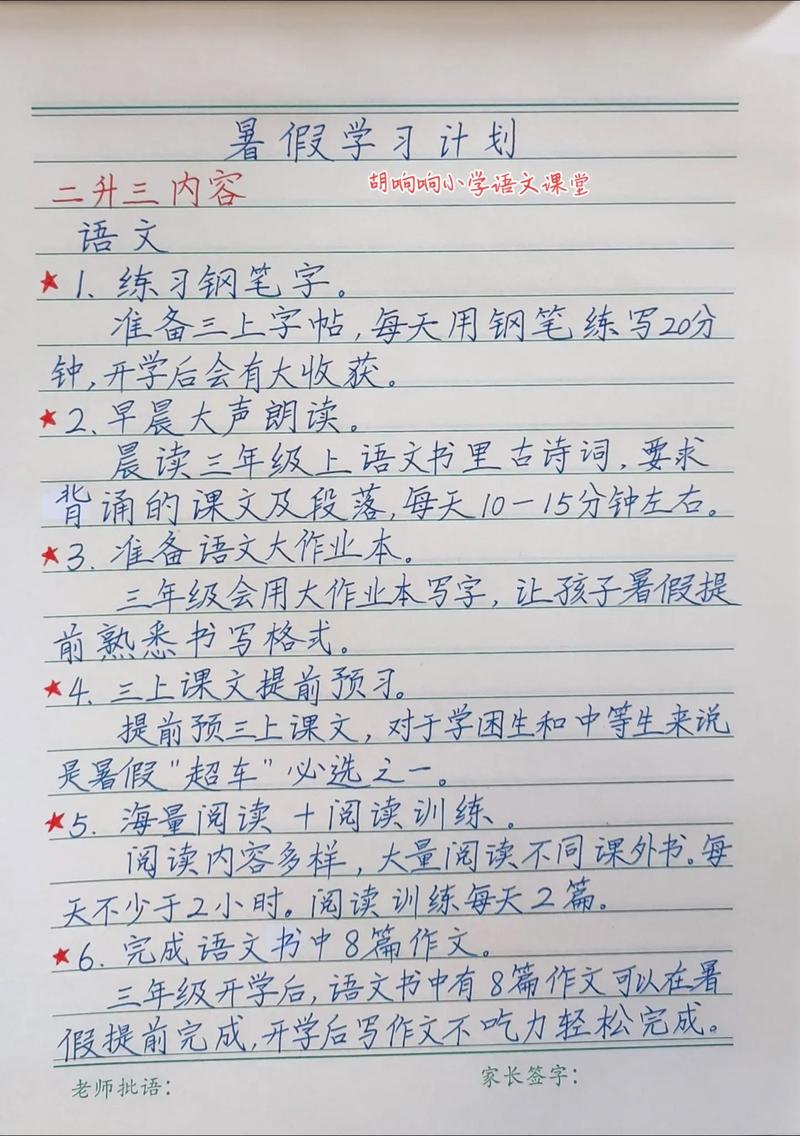 暑假学习计划
二升三内容
胡响响小学语文课堂
语文
★1、练习钢笔字。
准备三上字帖,每天用钢笔练写20分
钟,开学后会有大收获。
★2、早晨大声朗读。
晨读三年级上语文书里古诗词,要求
背诵的课文及段落,每天10-15分钟左右。
★3、准备语文大作业本。
三年级会用大作业本写字,让孩子暑假提
前熟悉书写格式。
★4、三上课文提前预习。
提前预三上课文,对于学困生和中等生来说
是暑假"超车"必选之一。
★5、海量阅读+阅读训练。
阅读内容多样,大量阅读不同课外书。每
天不少于2小时。阅读训练每天2篇。
★6、完成语文书中8篇作文。
三年级开学后,语文书中有8篇作文可以在暑
假提前完成,开学后写作文不吃力轻松完成。
老师批语:
家长签字: